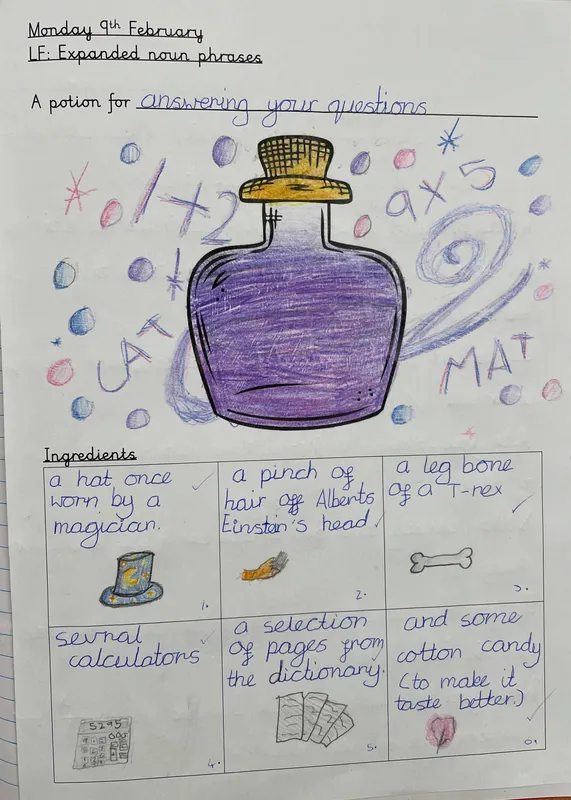 Monday 9th February
LF: Expanded noun phrases
A potion for answering your questions
1 x 2
9 x 5
CAT
MAT
Ingredients
a hat once
worn by a
magician.
1.
a pinch of
hair off Alberts
Einstein's head
2.
a leg bone
of a T-rex
3.
sevral
calculators
5295
4.
a selection
of pages from
the dictionary.
5.
and some
cotton candy
(to make it
taste better.)